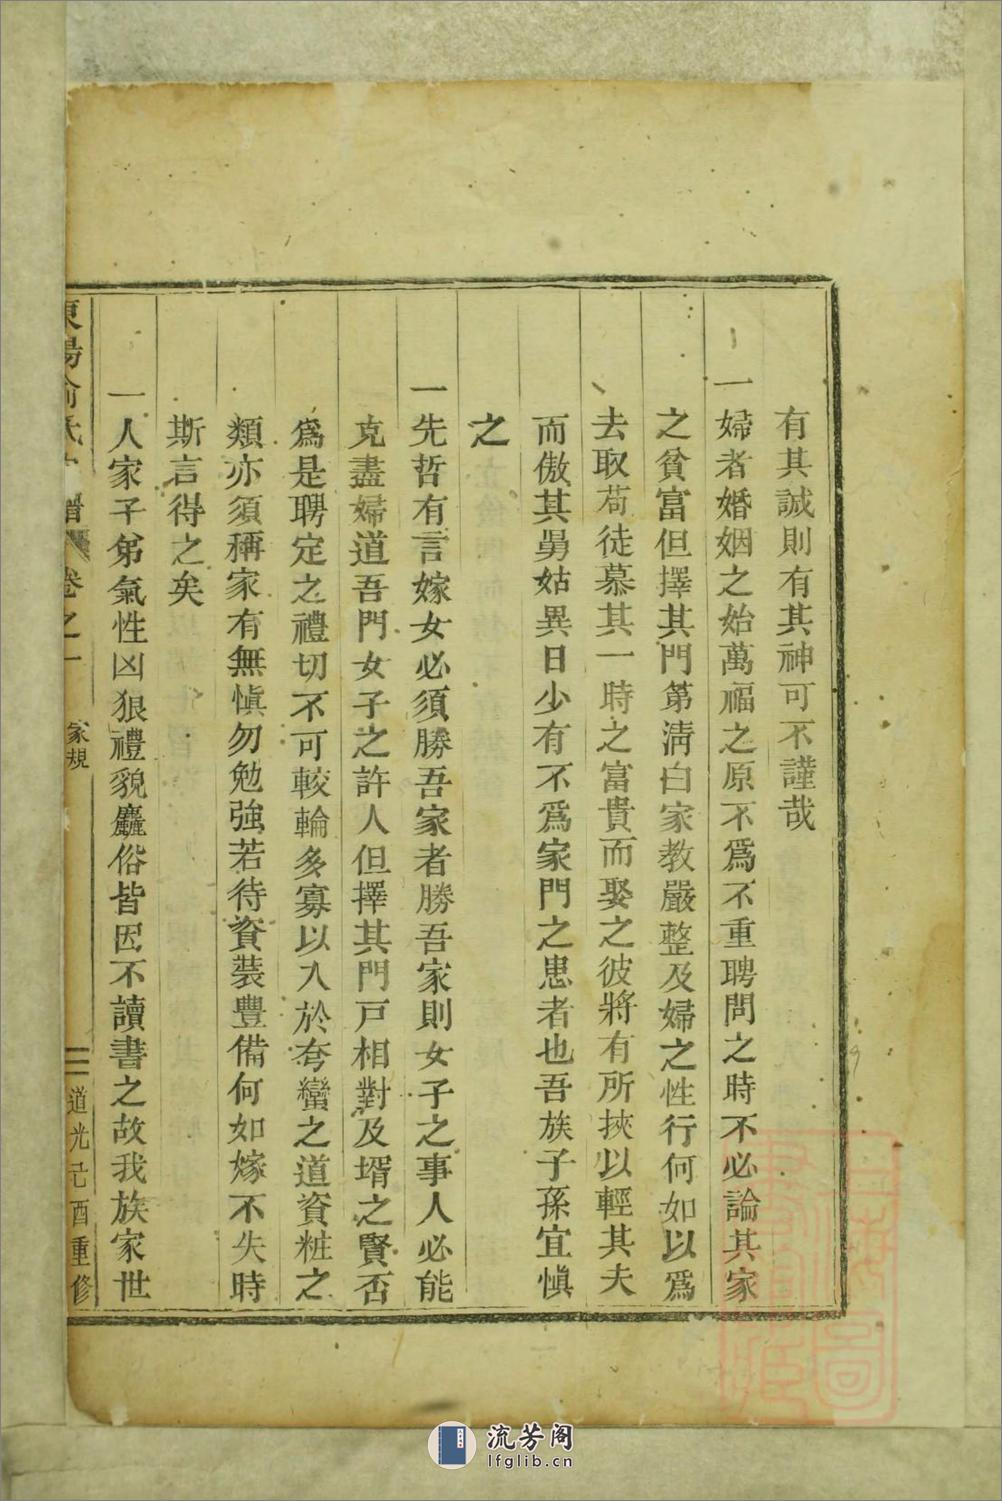 有其誠則有其神可不謹哉
一婦者婚姻之始萬福之原不爲不重聘問之時不必論其家
之貧富但擇其門第淸白家教嚴整及婦之性行何如以爲
去取苟徒慕其一時之富貴而娶之彼將有所挾以輕其夫
而傲其舅姑異日少有不爲家門之患者也吾族子孫宜愼
之
一先哲有言嫁女必須勝吾家者勝吾家則女子之事人必能
克盡婦道吾門女子之許人但擇其門戸相對及壻之賢否
爲是聘定之禮切不可較輪多寡以入於夸蠻之道資粧之
類亦須稱家有無愼勿勉強若待資裝豐備何如嫁不失時
斯言得之矣
一人家子弟氣性凶狠禮貌麤俗皆因不讀書之故我族家世
東陽俞氏 譜 卷之一 家規 二 道光己酉重修
流芳阁
lfglib.cn